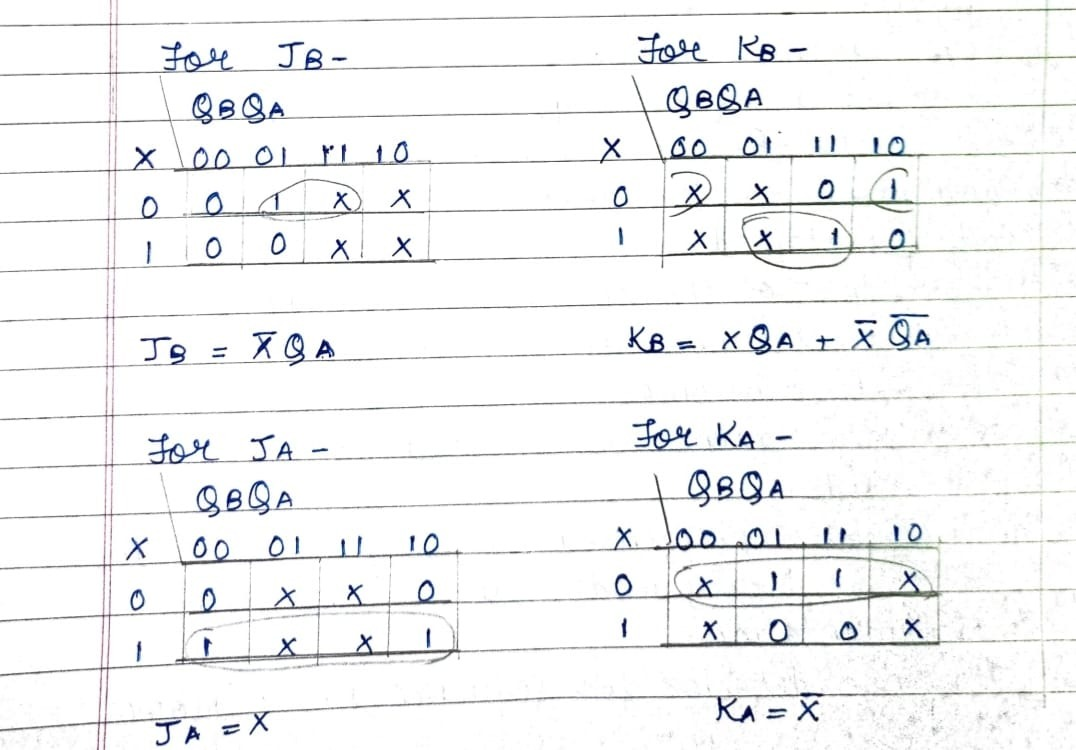 For JB-
QBQA
X 00 01 11 10
0 0 1 X X
1 0 0 X X
JB = X̅QA
For KB-
QBQA
X 00 01 11 10
0 X X 0 1
1 X X 1 0
KB = XQA + X̅ Q̅A̅
For JA-
QBQA
X 00 01 11 10
0 0 X X 0
1 1 X X 1
JA = X
For KA-
QBQA
X 00 01 11 10
0 X 1 1 X
1 X 0 0 X
KA = X̅